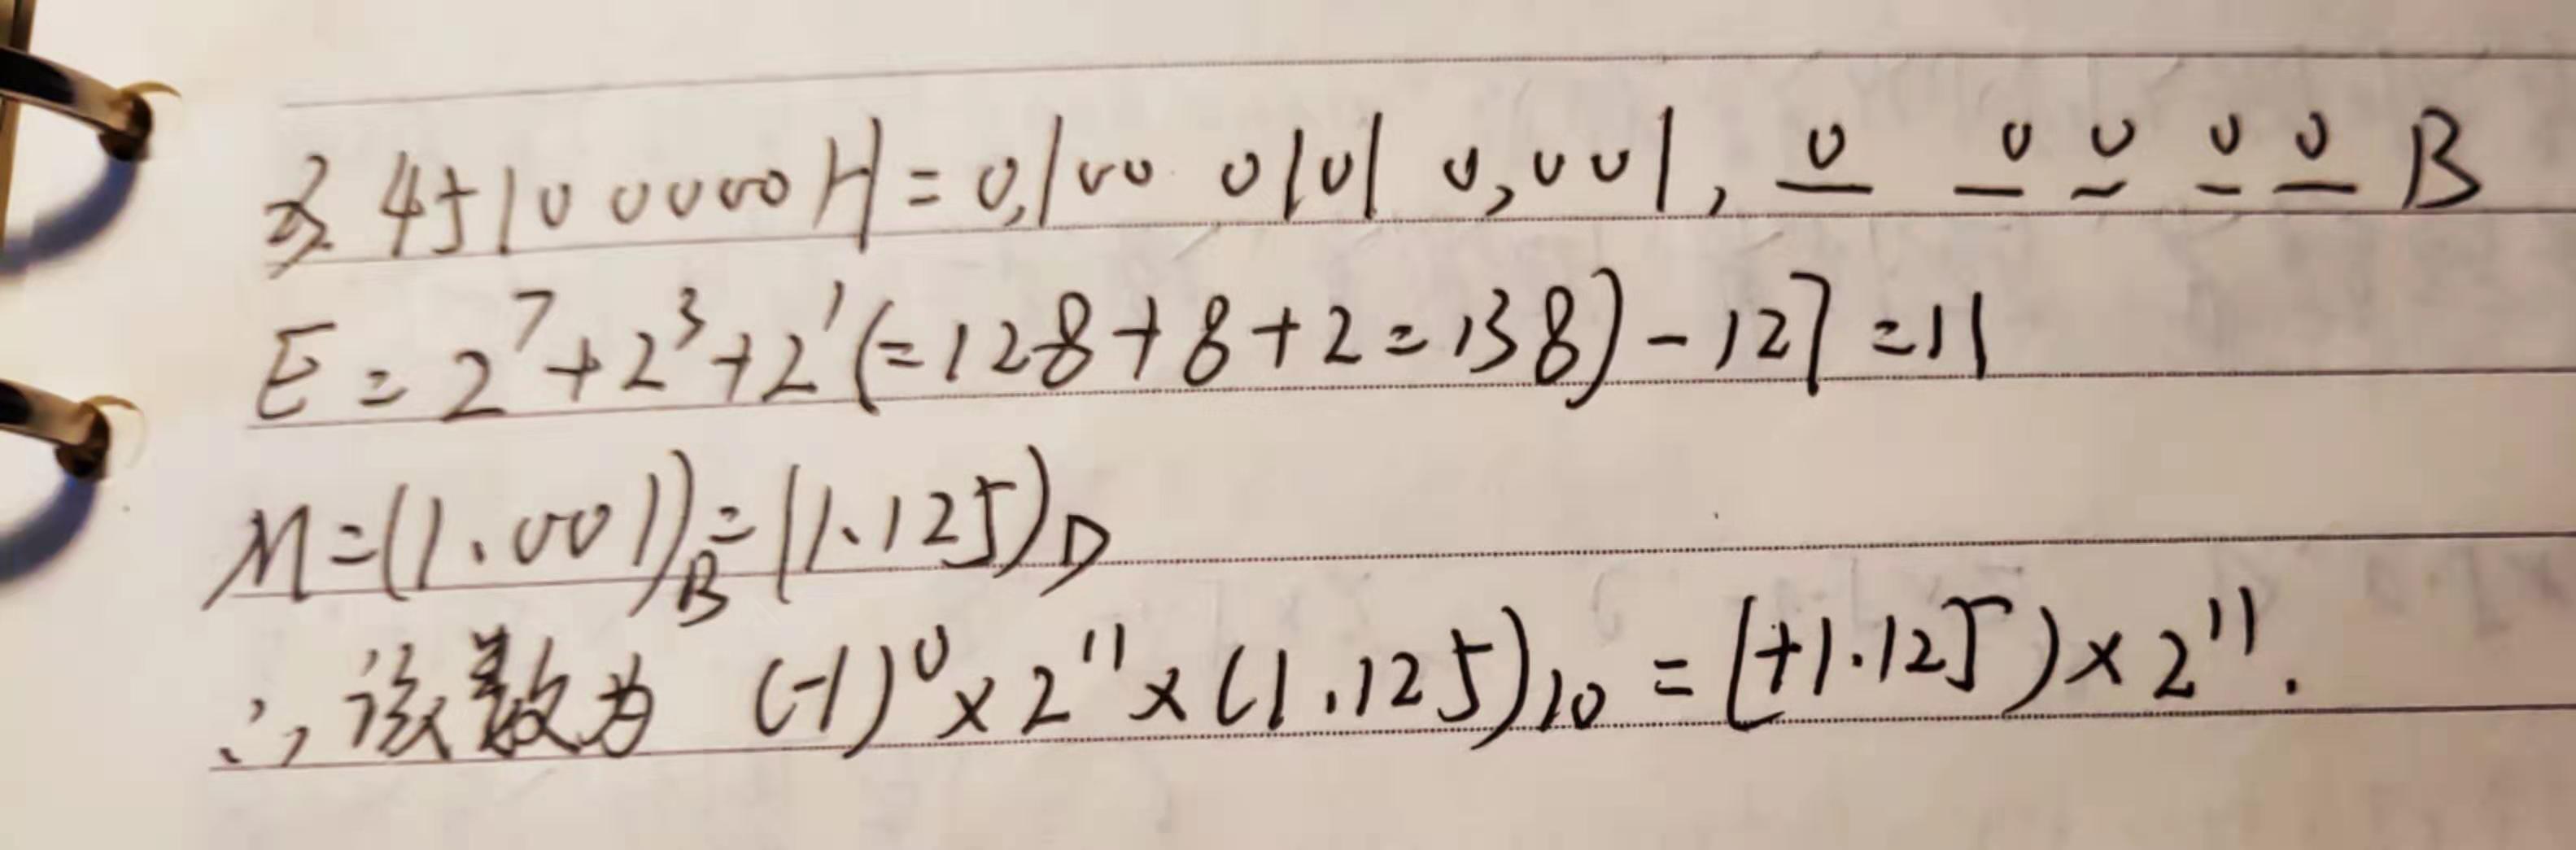 45100000H = 0,100 0101 0,001, 0 0 0 0 0 B
E = 2⁷ + 2³ + 2¹ (= 128 + 8 + 2 = 138) - 127 = 11
M = (1.001)B = (1.125)D
∴ 该数为 (-1)⁰ × 2¹¹ × (1.125)₁₀ = (+1.125) × 2¹¹.